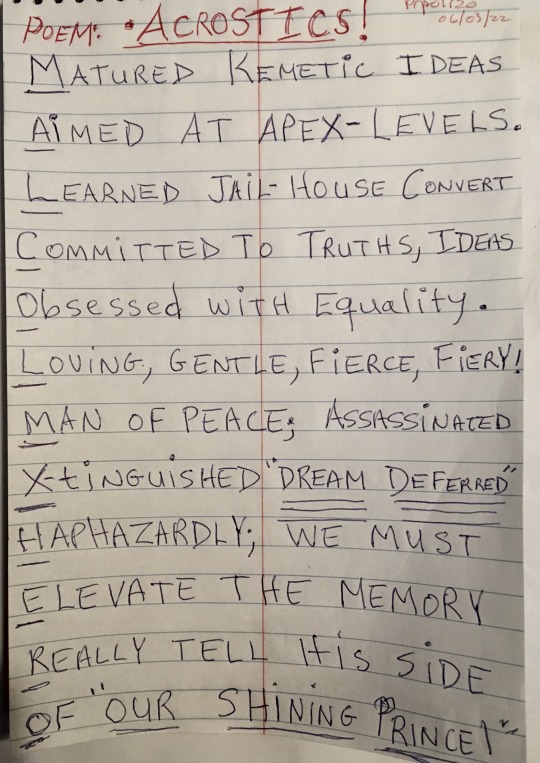 POEM: "ACROSTICS!
06/03/22
MATURED KEMETIC IDEAS
AIMED AT APEX-LEVELS.
LEARNED JAIL-HOUSE CONVERT
COMMITTED TO TRUTHS, IDEAS
Obsessed with Equality.
LOVING, GENTLE, FIERCE, FIERY!
MAN OF PEACE; ASSASSINATED
X-tinguished "DREAM DEFERRED"
HAPHAZARDLY; WE MUST
ELEVATE THE MEMORY
REALLY TELL HIS SIDE
OF "OUR SHINING PRINCE!"